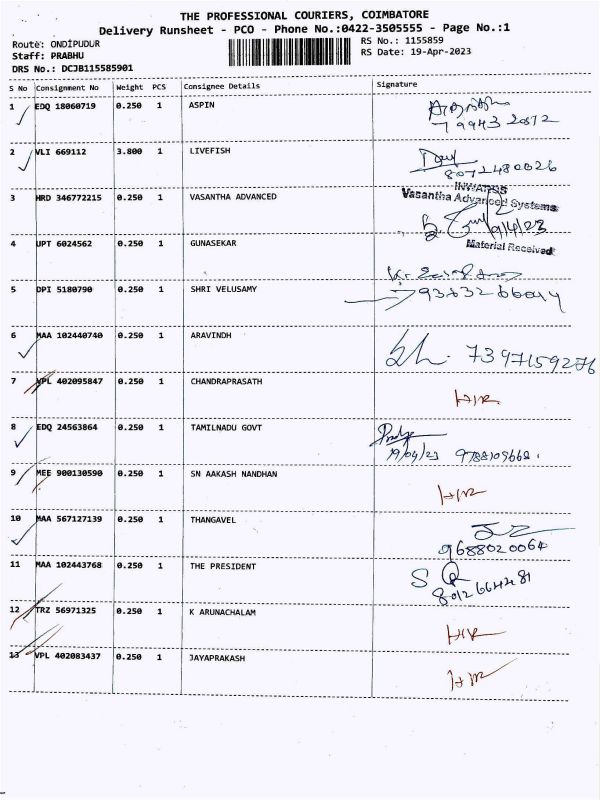 THE PROFESSIONAL COURIERS, COIMBATORE
Delivery Runsheet - PCO - Phone No.:0422-3505555 - Page No.:1
Route: ONDIPUDUR
RS No.: 1155859
Staff: PRABHU
RS Date: 19-Apr-2023
DRS No.: DCJB115585901
S No Consignment No Weight PCS Consignee Details Signature
1 EDQ 18060719 0.250 1 ASPIN
79943 2012
2 VLI 669112 3.800 1 LIVEFISH
8072480026
INWARDS
3 HRD 346772215 0.250 1 VASANTHA ADVANCED Vasantha Advanced Systems
19/4/23
4 UPT 6024562 0.250 1 GUNASEKAR Material Received
5 DPI 5180790 0.250 1 SHRI VELUSAMY
6 MAA 102440740 0.250 1 ARAVINDH
7397159276
7 VPL 402095847 0.250 1 CHANDRAPRASATH
8 EDQ 24563864 0.250 1 TAMILNADU GOVT
19/04/23 9788109668.
9 MEE 900130590 0.250 1 SN AAKASH NANDHAN
10 MAA 567127139 0.250 1 THANGAVEL
9688020064
11 MAA 102443768 0.250 1 THE PRESIDENT
8012664481
12 TRZ 56971325 0.250 1 K ARUNACHALAM
13 VPL 402083437 0.250 1 JAYAPRAKASH